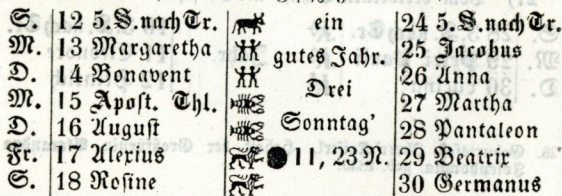 S. 12 5. S. nach Tr. ein 24 5. S. nach Tr.
M. 13 Margaretha gutes Jahr. 25 Jacobus
D. 14 Bonavent Drei 26 Anna
M. 15 Apost. Thl. 27 Martha
D. 16 August Sonntag' 28 Pantaleon
Fr. 17 Alexius 11, 23 N. 29 Beatrix
S. 18 Rosine 30 Germanus